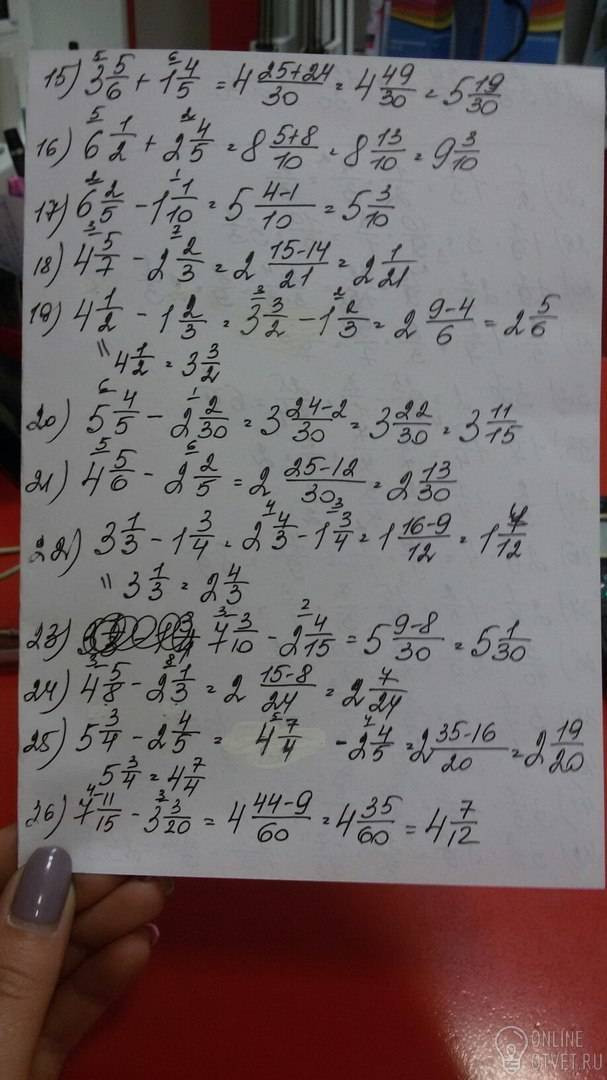 15) 3 5/6 + 1 4/5 = 4 25+24/30 = 4 49/30 = 5 19/30
16) 6 1/2 + 2 4/5 = 8 5+8/10 = 8 13/10 = 9 3/10
17) 6 2/5 - 1 1/10 = 5 4-1/10 = 5 3/10
18) 4 5/7 - 2 2/3 = 2 15-14/21 = 2 1/21
19) 4 1/2 - 1 2/3 = 3 3/2 - 1 2/3 = 2 9-4/6 = 2 5/6
" 4 1/2 = 3 3/2
20) 5 4/5 - 2 2/30 = 3 24-2/30 = 3 22/30 = 3 11/15
21) 4 5/6 - 2 2/5 = 2 25-12/30 = 2 13/30
22) 3 1/3 - 1 3/4 = 2 4/3 - 1 3/4 = 1 16-9/12 = 1 7/12
" 3 1/3 = 2 4/3
23) 7 3/10 - 2 4/15 = 5 9-8/30 = 5 1/30
24) 4 5/8 - 2 1/3 = 2 15-8/24 = 2 7/24
25) 5 3/4 - 2 4/5 = 4 7/4 - 2 4/5 = 2 35-16/20 = 2 19/20
5 3/4 = 4 7/4
26) 7 11/15 - 3 3/20 = 4 44-9/60 = 4 35/60 = 4 7/12
ONLINE
OTVET.RU